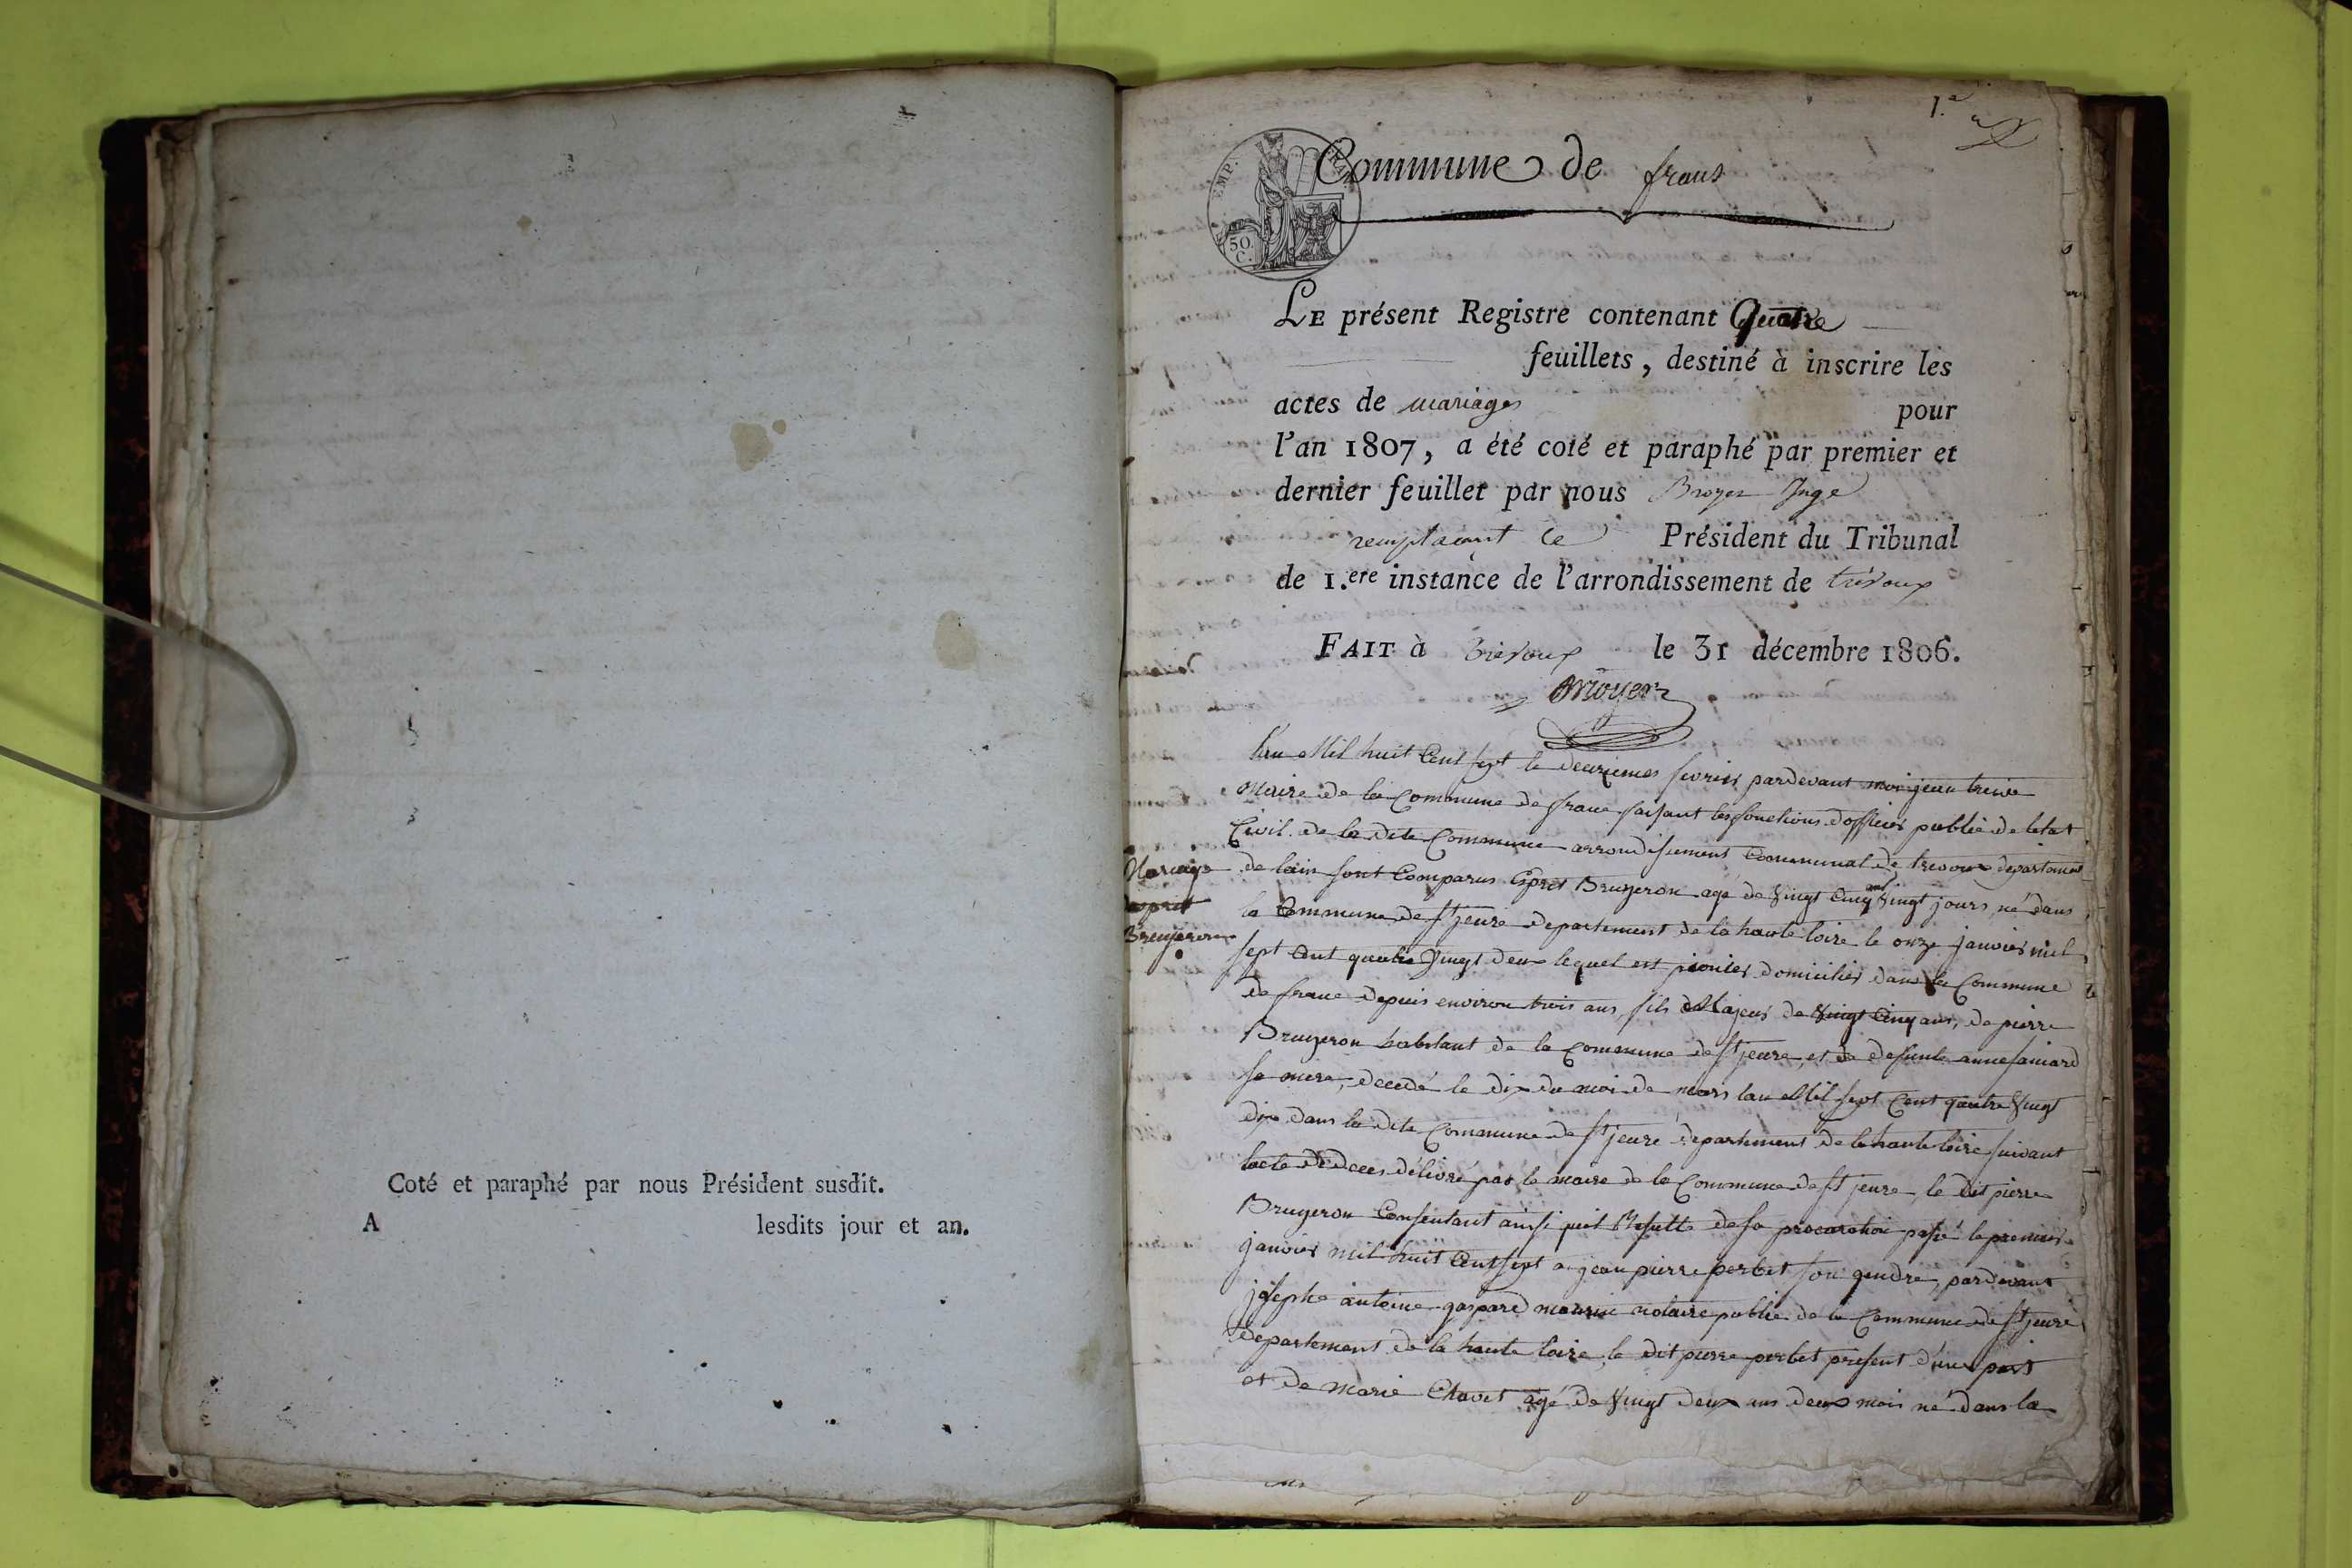 Coté et paraphé par nous Président susdit.
A lesdits jour et an.
1.er
EMP. FRAN
50.
C.
Commune de frans
LE présent Registre contenant Quatre
feuillets, destiné à inscrire les
actes de mariages pour
l'an 1807, a été coté et paraphé par premier et
dernier feuillet par nous Broyer Juge
remplaçant le Président du Tribunal
de 1.ere instance de l'arrondissement de trévoux
FAIT à Trévoux le 31 décembre 1806.
Broyer
Mariage
desprit
Brugeron
Lan Mil huit Cent sept le deuxieme fevrier pardevant moi jean
Maire de la Commune de franc faisant les fonctions dofficier public de letat
Civil de la dite Commune arrondissement Communal de trevoux departement
de lain sont Comparus Esprit Brugeron agé de vingt Cinq ans vingt jours, né dans
la Commune de St jeure departement de la haute loire le onze janvier mil
sept Cent quatre vingt deux lequel est domicilier dans la Commune
de franc depuis environ trois ans, fils Majeur de vingt Cinq ans, de pierre
Brugeron habitant de la Commune de St jeure, et de defunte anne
sa mere, decedé le dix du moi de mars lan Mil sept Cent quatre vingt
dix dans la dite Commune de St jeure departement de la haute loire suivant
lacte de deces délivré par le maire de la Commune de St jeure, le dit pierre
Brugeron Consentant ainsi quil Resulte de sa procuration passé le premier
janvier mil huit Cent sept a jean pierre perbet son gendre, pardevant
josephe antoine gaspard notaire public de la Commune de St jeure
departement de la haute loire, le dit pierre perbet present d'une part
et de marie Chavet agé de vingt deux ans deux mois né dans la